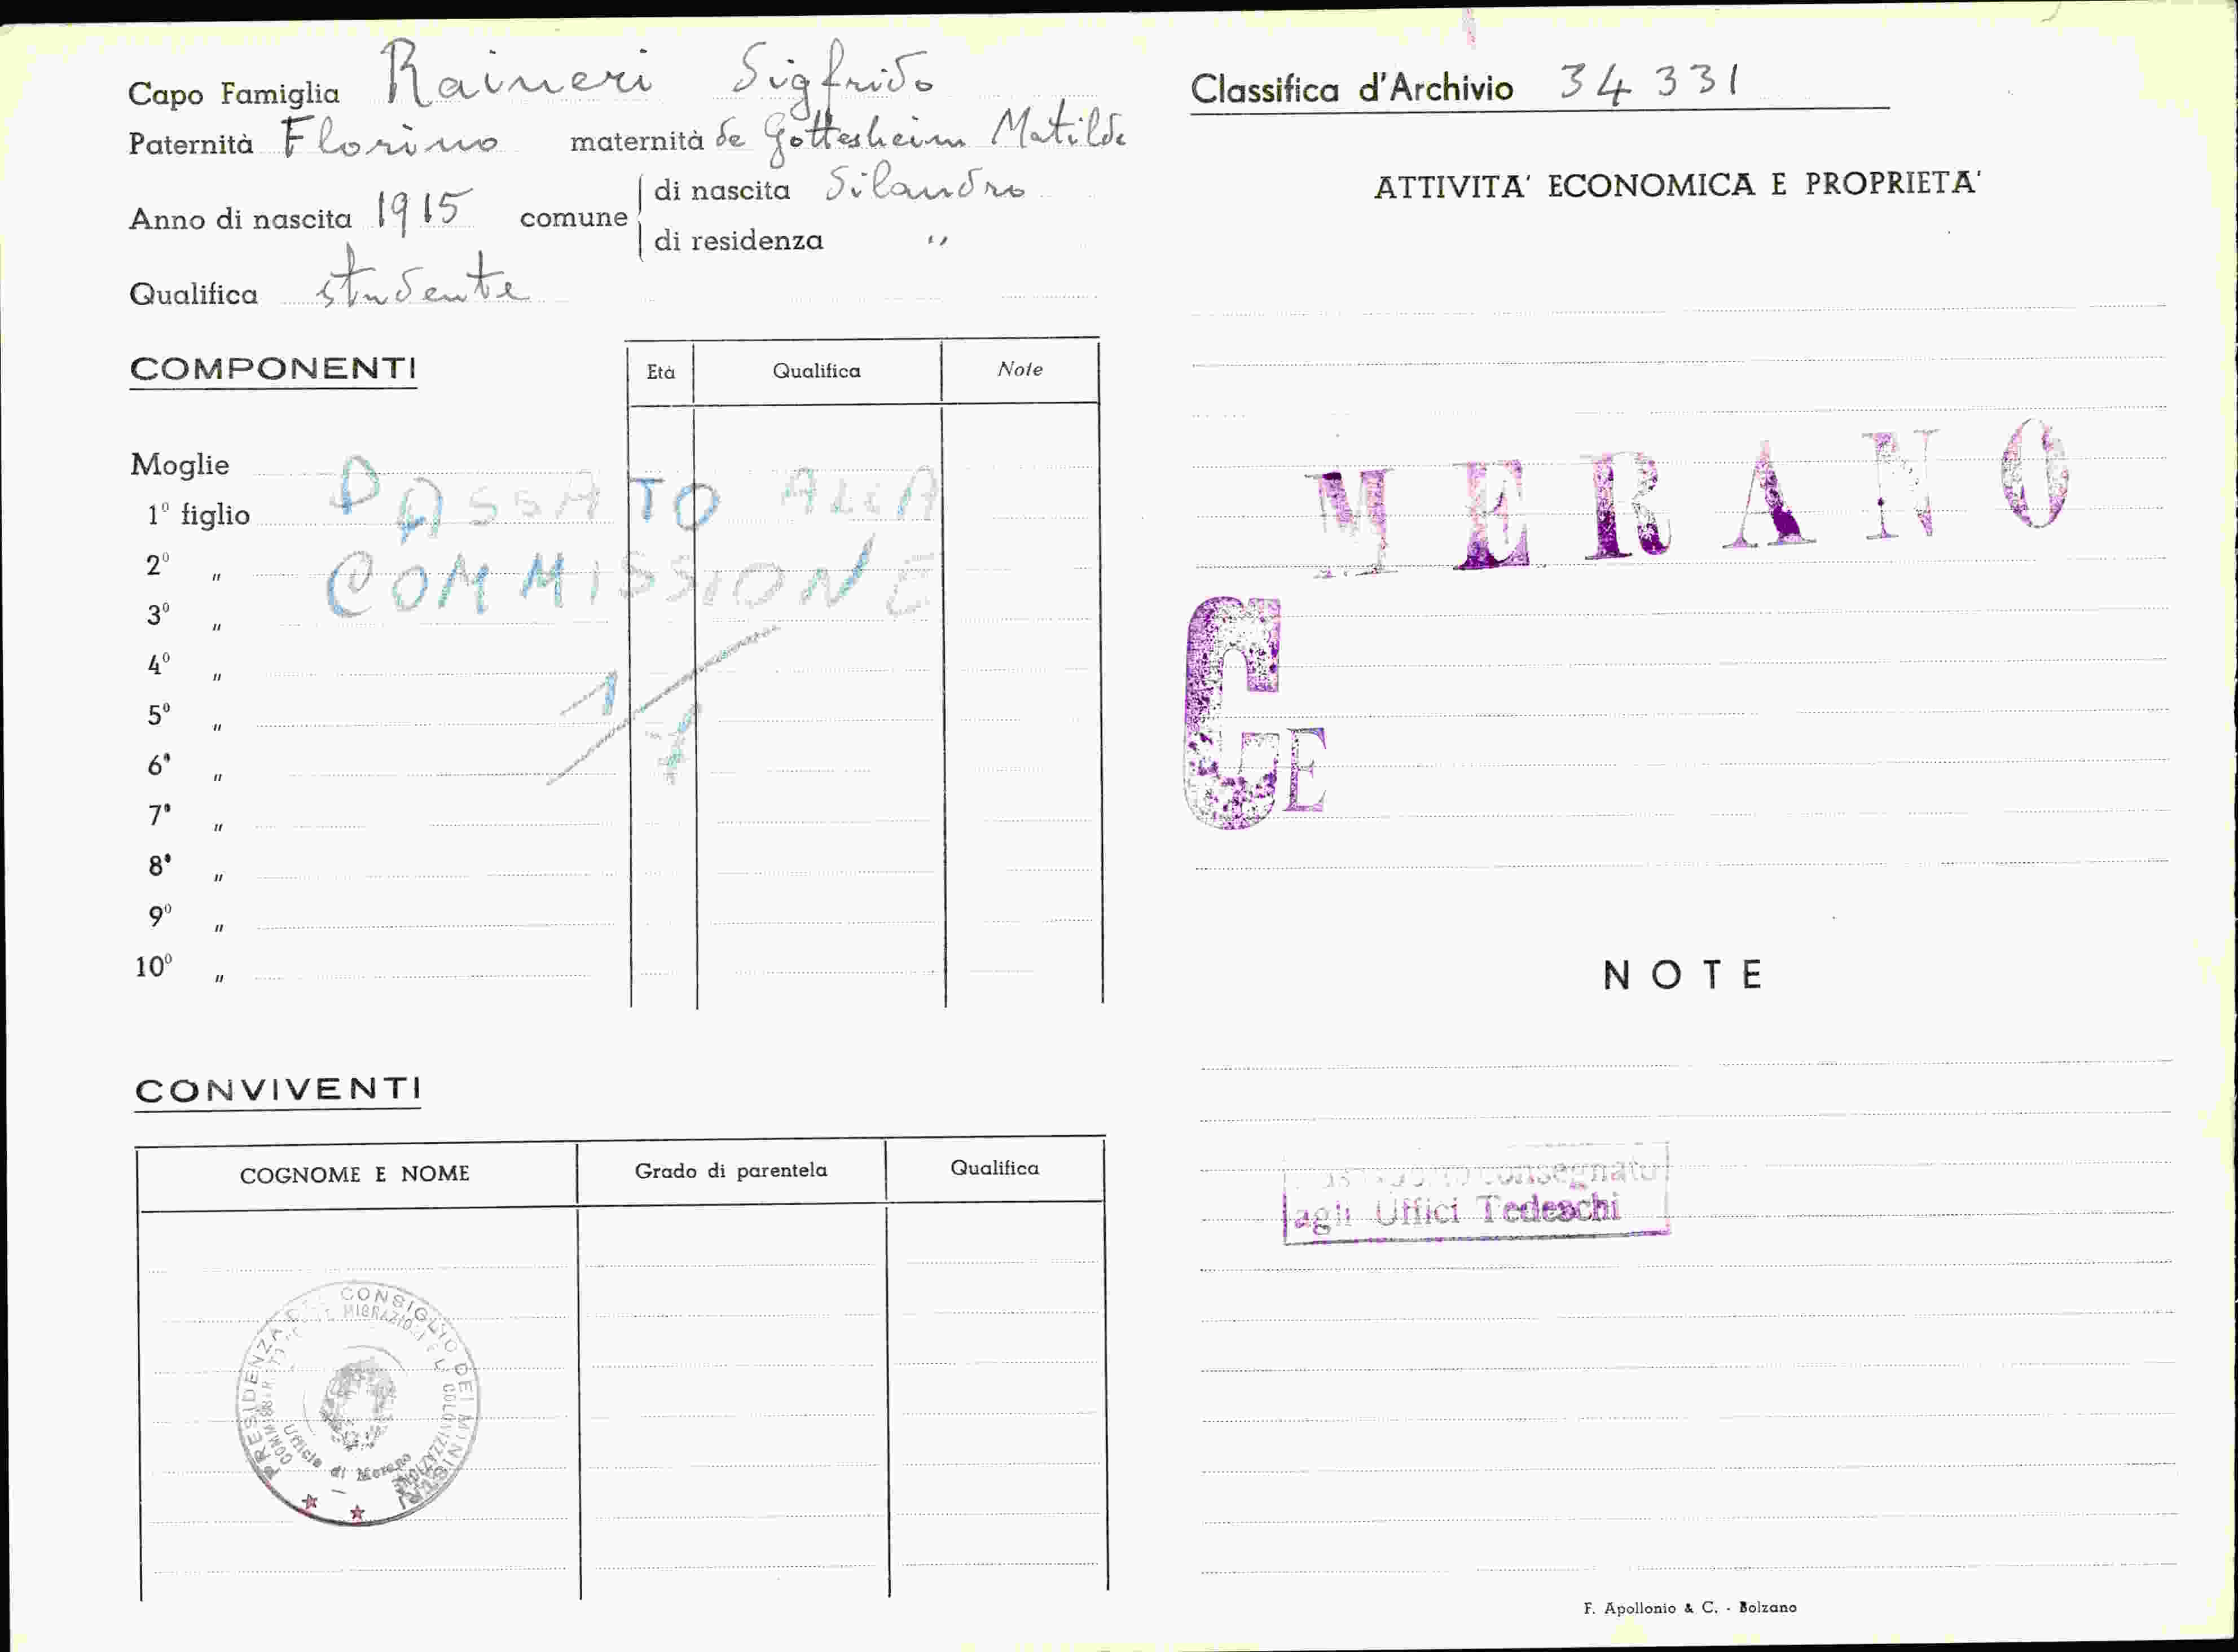 Capo Famiglia Raineri Sigfrido
Paternità Florino maternità de Gottesheim Matilde
Anno di nascita 1915 comune di nascita Silandro
di residenza "
Qualifica studente
COMPONENTI
Età Qualifica Note
Moglie
1° figlio
2° "
3° "
4° "
5° "
6° "
7° "
8° "
9° "
10° "
PASSATO ALLA
COMMISSIONE
1
CONVIVENTI
COGNOME E NOME Grado di parentela Qualifica
PRESIDENZA DEL CONSIGLIO DEI MINISTRI
MIGRAZIONI E L COLONIZZAZIONE
Ufficio di Merano
Classifica d'Archivio 34331
ATTIVITA' ECONOMICA E PROPRIETA'
MERANO
G
E
NOTE
consegnato
agli Uffici Tedeschi
F. Apollonio & C. - Bolzano